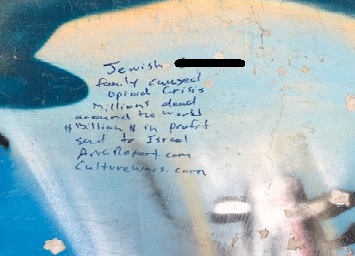 Jewish
family caused
Opioid Crisis
Millions dead
around the world
$Billion$ in profit
sent to Israel
CultureWars.com